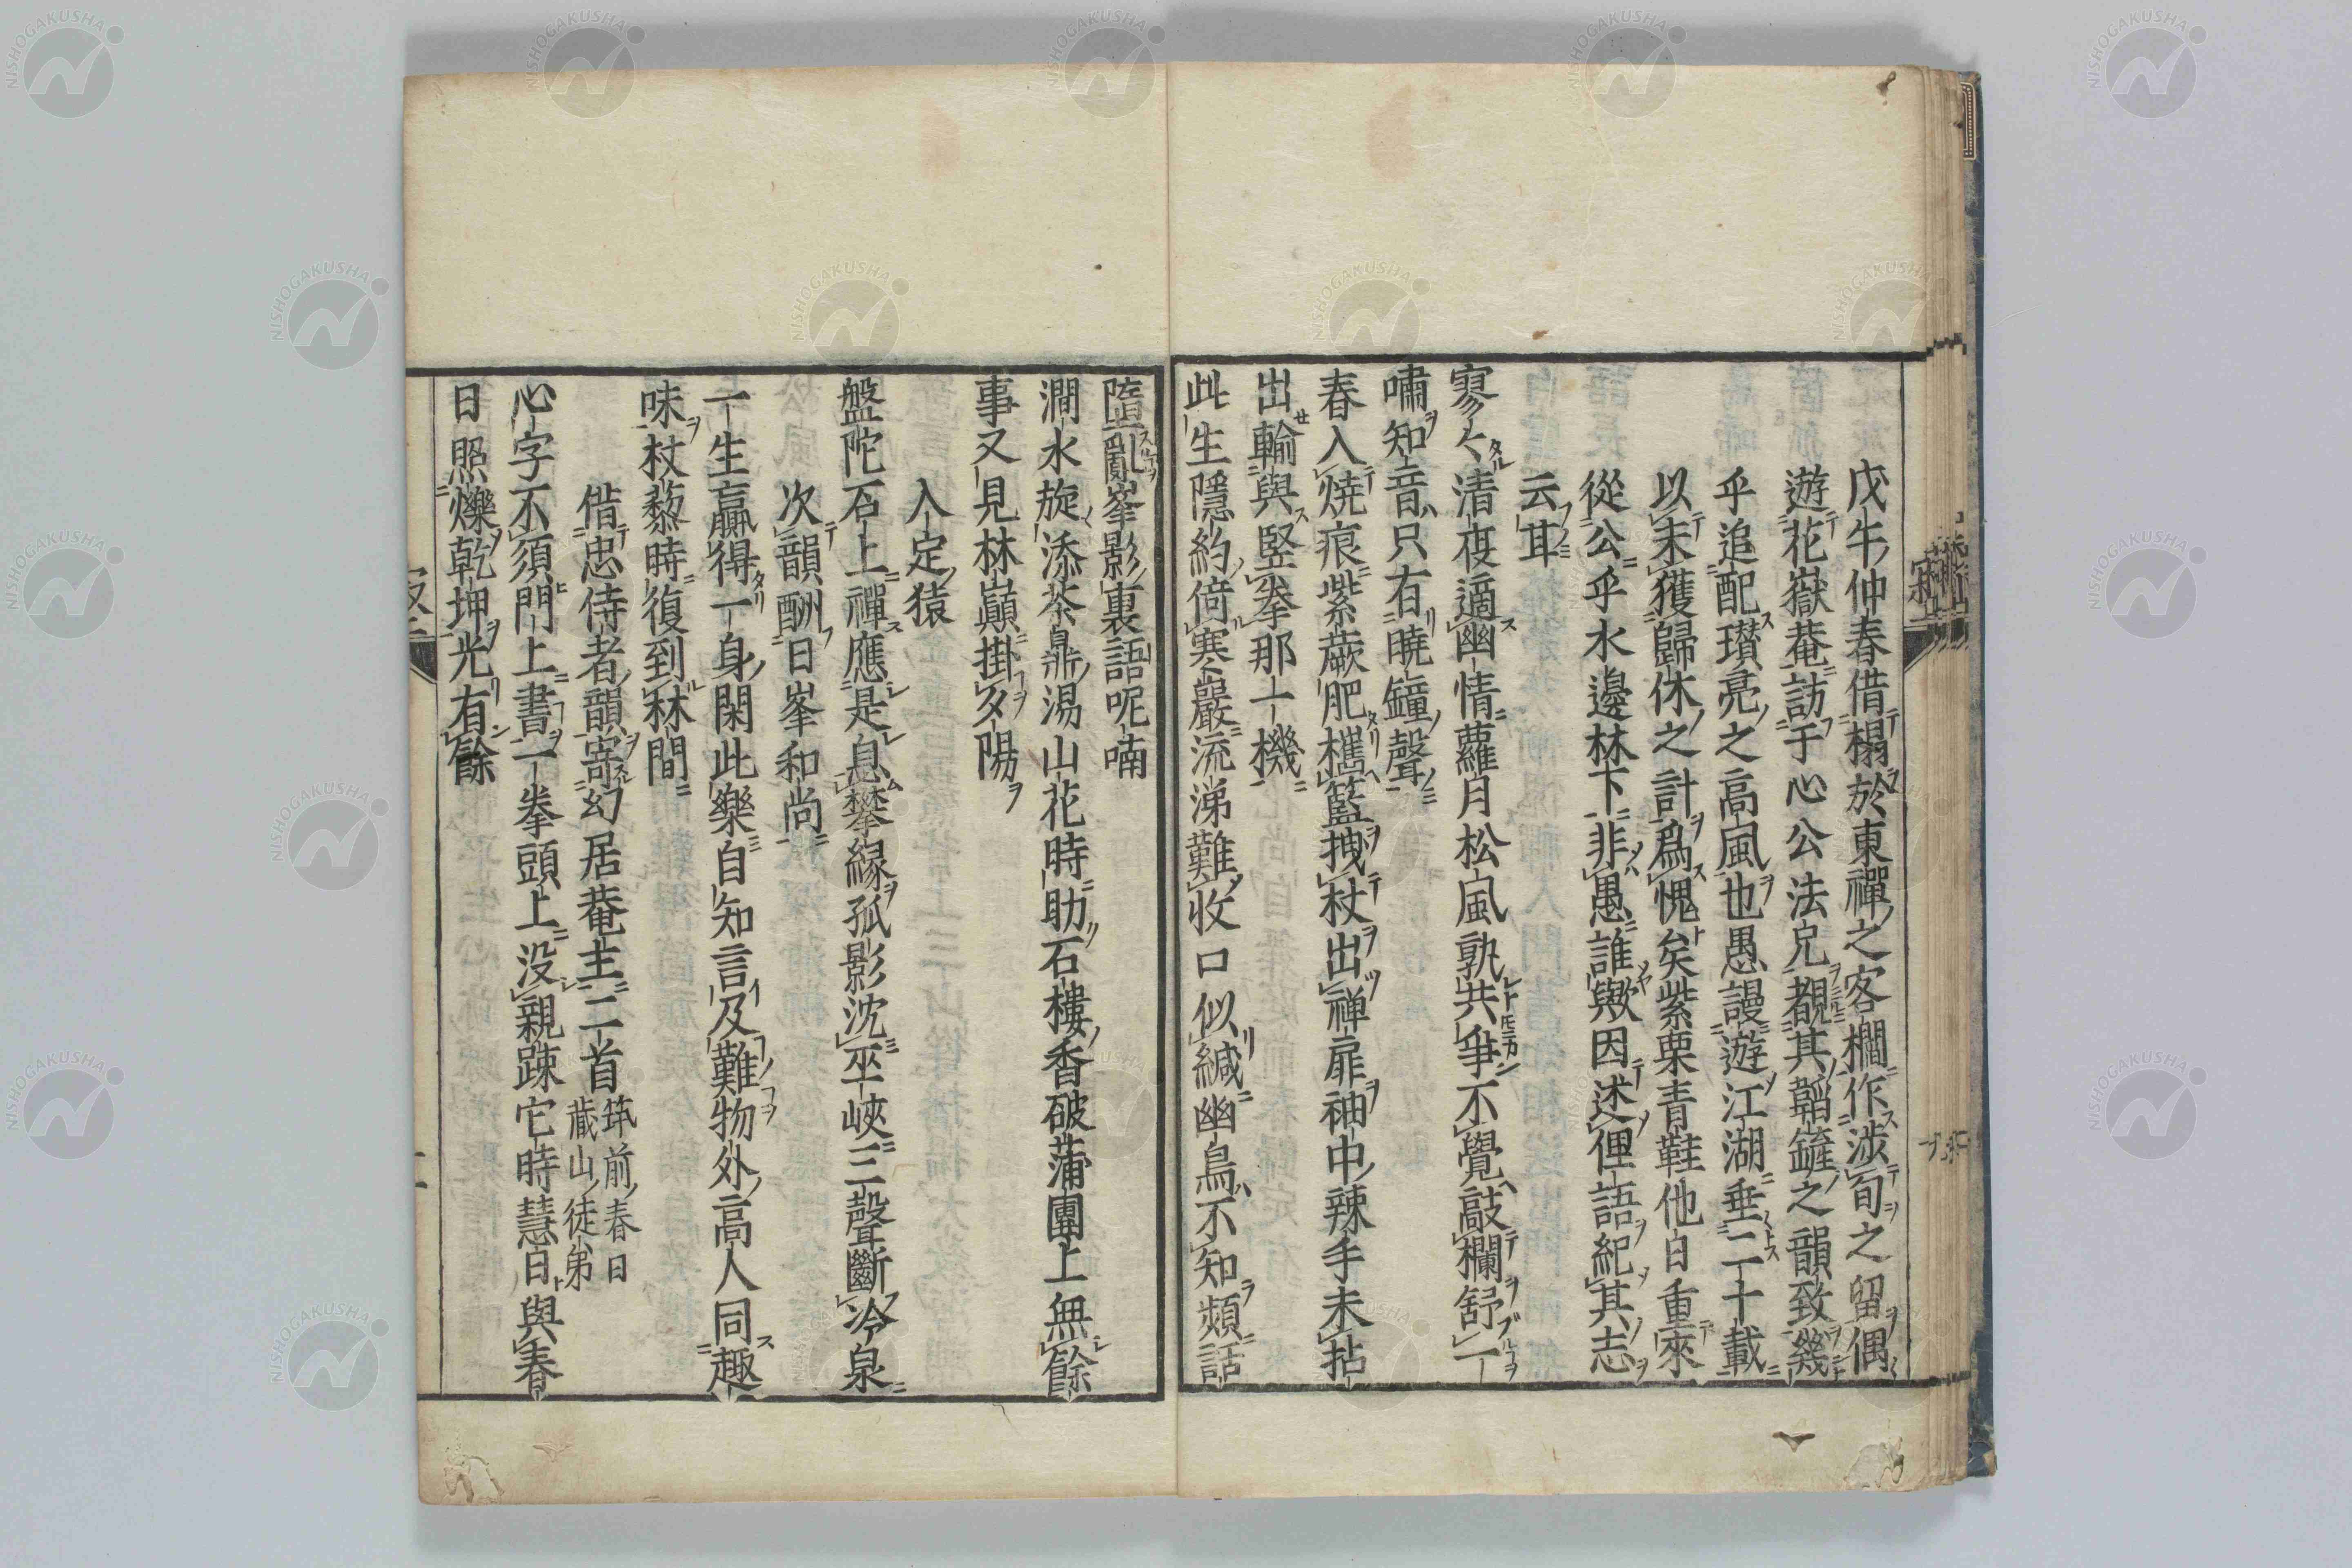 戊午仲春借榻於東禪之客欄作渉旬之留偶
遊花嶽菴訪于心公法兄覩其韜鏟之韻致幾
乎追配瓉亮之高風也愚謾遊江湖垂二十載
以未獲歸休之計爲愧矣紫栗青鞋他日重來
從公乎水邊林下非愚誰歟因述俚語紀其志
云耳
寥々清夜適幽情蘿月松風孰共爭不覺敲欄舒一
嘯知音只有曉鐘聲
春入燒痕紫蕨肥檇籃拽杖出禅扉袖中辣手未拈
出輸與竪拳那一機
此生隱約倚寒巖流涕難收口似緘幽鳥不知頻話
墮亂峯影裏語呢喃
澗水旋添茶鼎湯山花時助石樓香破蒲團上無餘
事又見林巓掛夕陽
入定猿
盤陀石上禪應是息攀緣孤影沈巫峽三聲斷冷泉
次韻酬日峯和尚
一生贏得一身閑此樂自知言及難物外高人同趣
味杖藜時復到林間
借忠侍者韻寄幻居菴主二首 筑前春日
藏山徒弟
心字不須門上書一拳頭上沒親疎它時慧日與春
日照爍乾坤光有餘